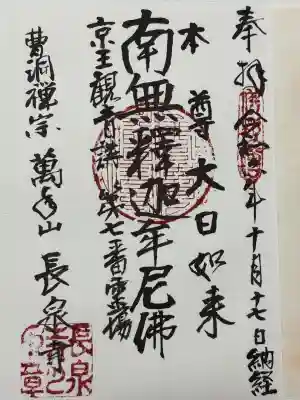 奉拝 令和 年十月十七日納経
本尊大日如来
南無釋迦牟尼佛
京王觀音札所 第七番霊場
曹洞禅宗 萬秀山 長泉寺
長泉